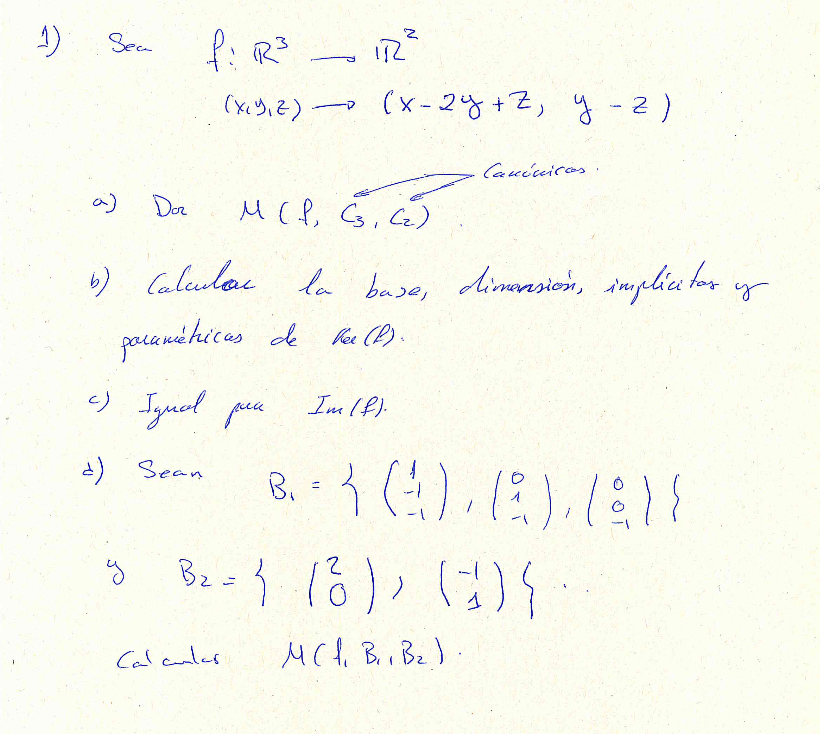 1) Sea f: ℝ³ → ℝ²
(x,y,z) → (x-2y+z, y-z)
Canónicas.
a) Dar M(f, C₃, C₂).
b) Calcular la base, dimensión, implícitas y
paramétricas de Ker(f).
c) Igual para Im(f).
d) Sean B₁ = { (1 -1 -1), (0 1 -1), (0 0 -1) }
y B₂ = { (2 0), (-1 1) }.
Calcular M(f, B₁, B₂).